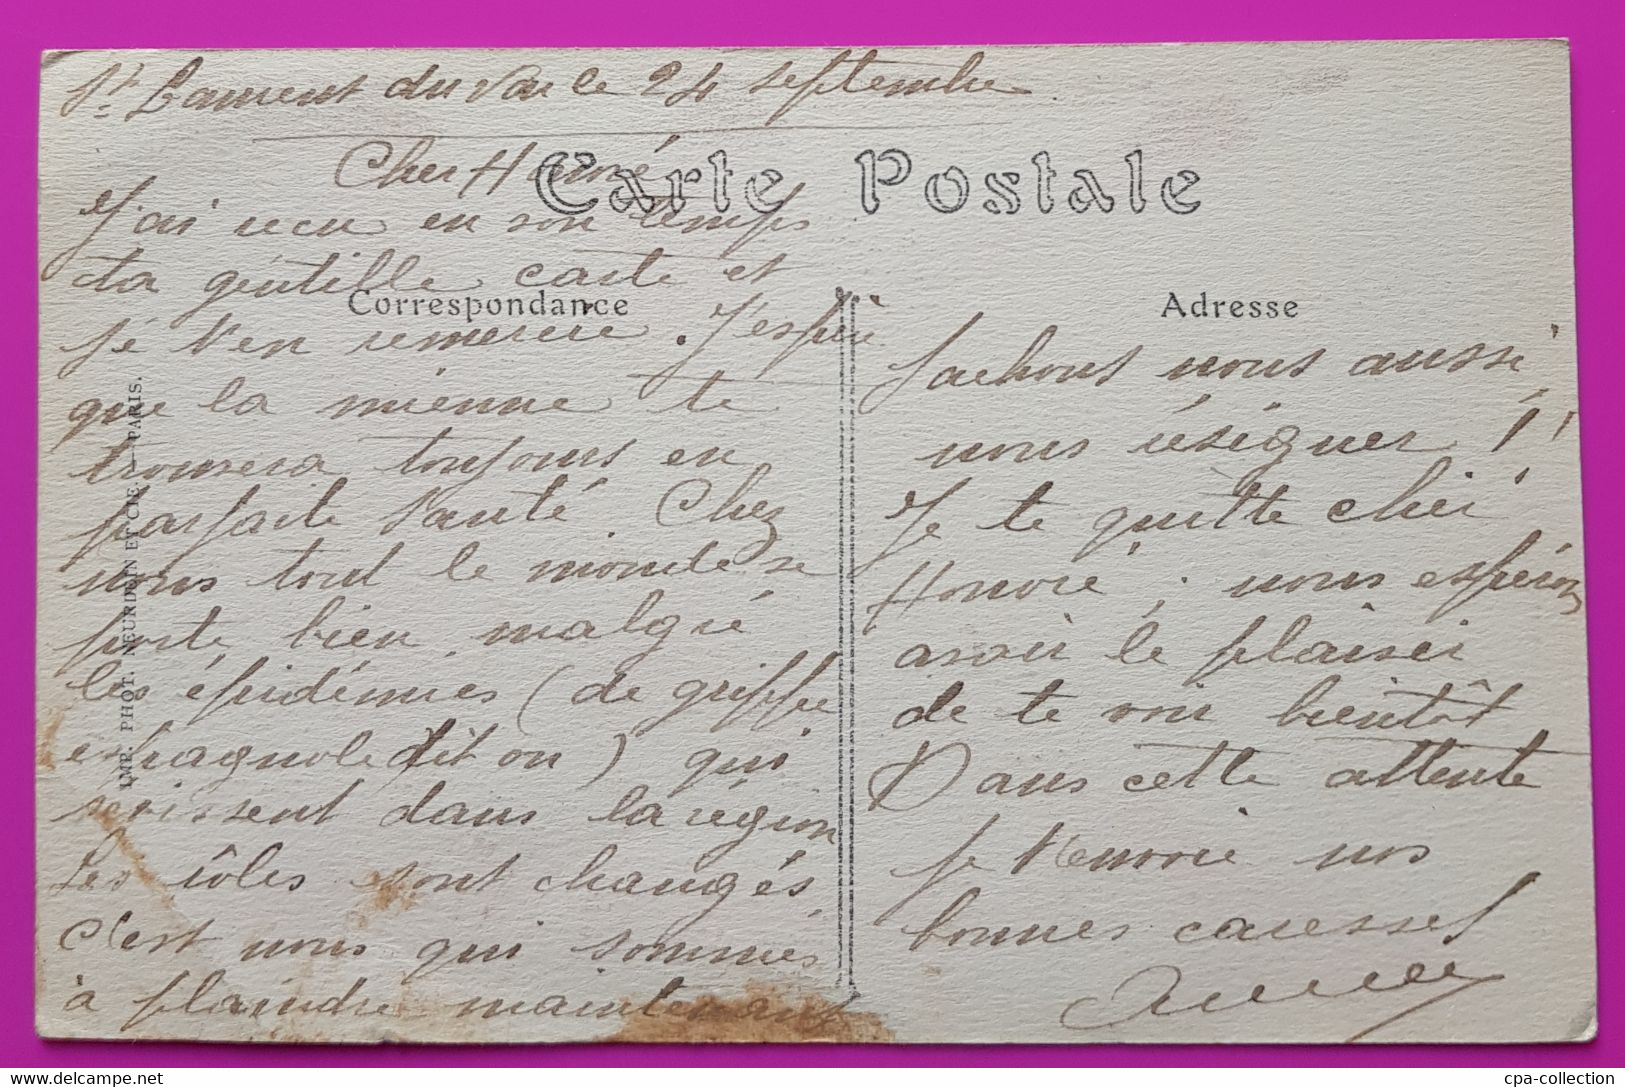 St Laurent du Var ce 24 septembre
Cher Honoré
Carte Postale
J'ai recu en son temps
ta gentille carte et
Correspondance
je t'en remercie. J'espère
que la mienne te
trouvera toujours en
parfaite santé. Chez
nous tout le monde se
porte bien, malgré
les épidémies (de grippe
espagnole dit on) qui
sévissent dans la région
Les rôles sont changés,
c'est nous qui sommes
à plaindre maintenant
IMP. PHOT. NEURDEIN ET CIE. — PARIS.
Adresse
Sachons nous aussi,
nous résigner !!
Je te quitte cher
Honoré, nous espérons
avoir le plaisir
de te voir bientôt
Dans cette attente
je t'envoie nos
bonnes caresses
cpa-collection